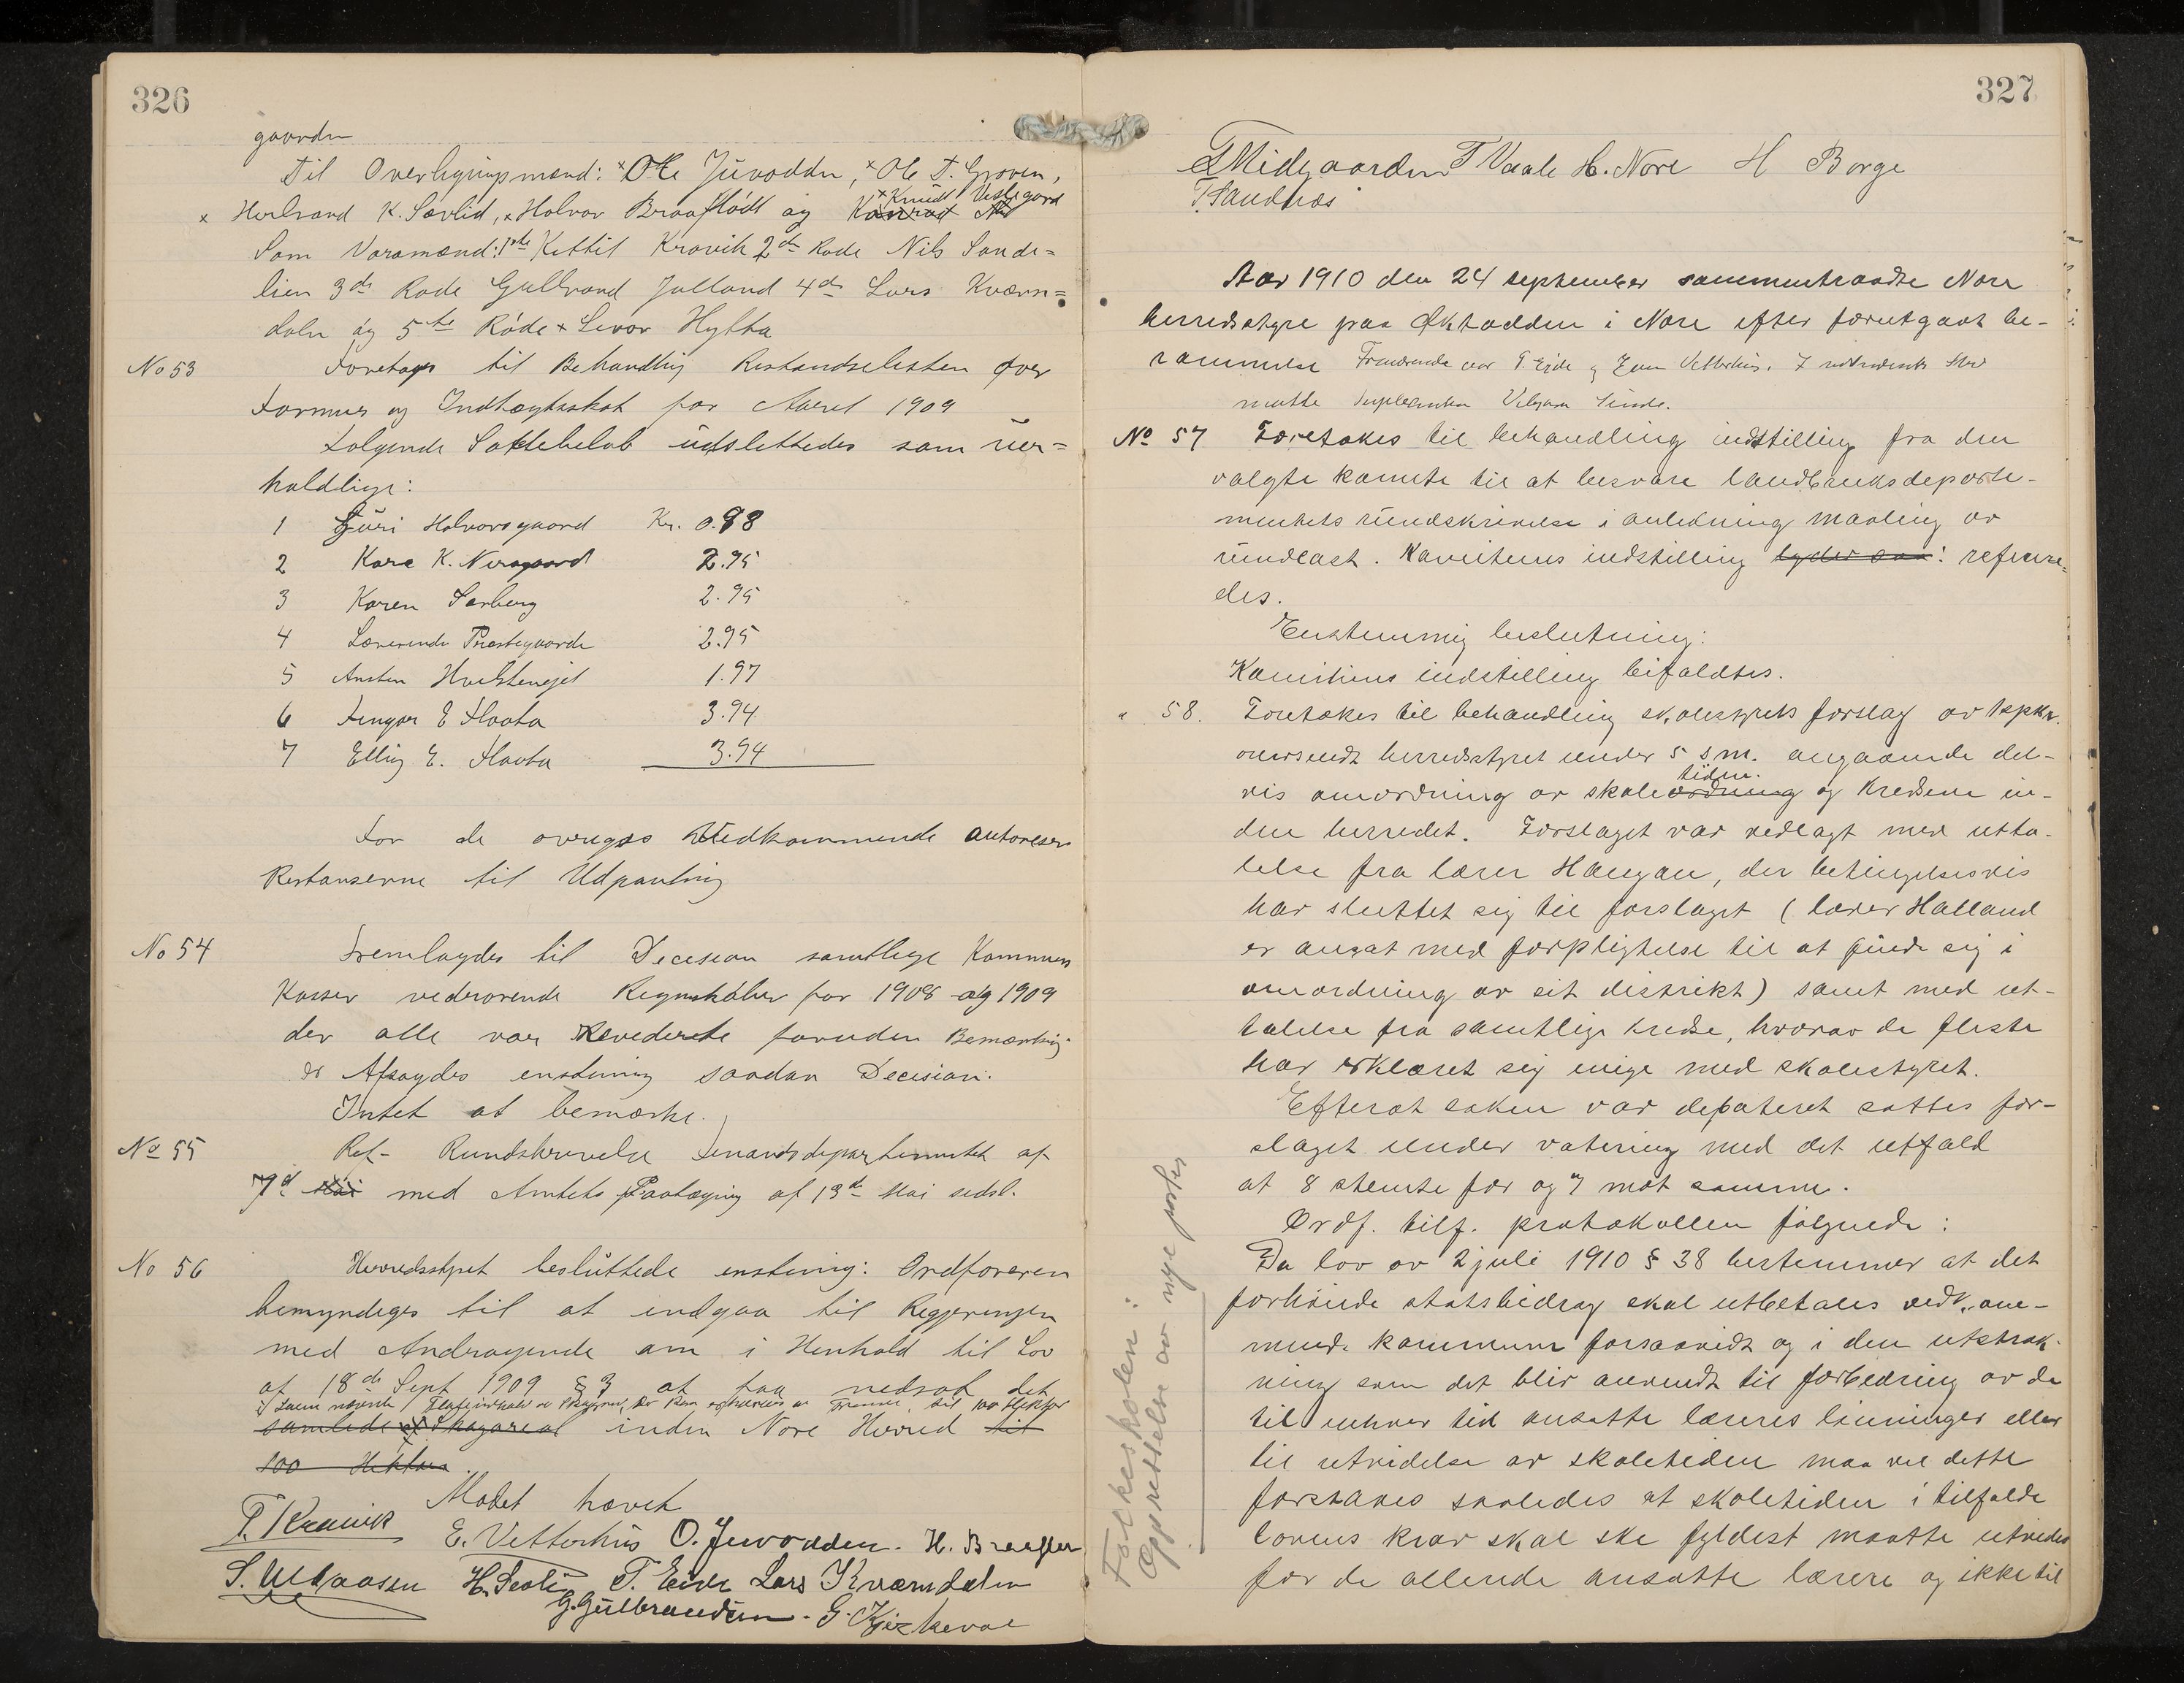 326
gaarden
Til Overligningsmænd: Ole Juvodden, Ole T. Groven,
Herbrand K. Sævlid, Halvor Braaflødt og Knud Vestegaard
Som Varamænd: 1ste Kettil Kravik 2den Rode Nils Sande=
lien 3de Rode Gulbrand Jalland 4de Lars Kværn=
daln og 5te Rode Levor Hytta
No 53 Foretages til Behandling Restanselisten over
Formues og Indtægtsskat for Aaret 1909
Følgende Skattebeløb udslettedes som uer=
holdlige:
1 Guri Halvorsgaard Kr. 0.98
2 Kare K. Nergaard 2.95
3 Karen Sørberg 2.95
4 2.95
5 1.97
6 Slaata 3.94
7 Elling E. Slaata 3.94
For de øvriges Vedkommende autoriseres
Restanserne til Udpantning
No 54 Fremlagdes til Decision samtlige Kommunes
Kasser vedrørende Regnskaber for 1908 og 1909
der alle var Reviderte foruden Bemærkning
Afsagdes enstemig saadan Decision:
Intet at bemærke.
No 55 Ref. Rundskrivelse Finansdepartementet af
7d Mai med Amtets Paategning af 13de Mai sidstl.
No 56 Herredsstyret besluttede enstemig: Ordføreren
bemyndiges til at indgaa til Regjeringen
med Andragende om i Henhold til Lov
af 18de Sept 1909 § 3 at faa nedsat det
i Loven nævnte til 100 Hektar
samlede Skogareal inden Nore Herred til
100 Hektar.
Mødet hævet
T. Kravik E. Vetterhus O. Juvodden. H. Braafladt
H. Seoli T. Eide Lars Kværndaln
G. Gulbrandsen. G. Kjerkevoe
327
T Midgaarden T Vaale H. Nore H Borge
T. Sandnæs
Aar 1910 den 24 september sammentraadte Nore
herredsstyre paa Øktodden i Nore efter forutgaat be-
rammelse Fraværende var T. Eide og Even Vetterhus. I sidstnævntes sted
møtte suppleanten
No 57 Foretakes til behandling indstilling fra den
valgte komite til at besvare landbruksdeparte-
mentets rundskrivelse i anledning maaling av
rundlast. Komiteens indstilling lyder saa: refere-
des.
Enstemmig beslutning:
Komiteens indstilling bifaldtes.
" 58. Foretakes til behandling skolestyrets forslag av
oversendt herredsstyret under 5 s.m. angaaende del-
vis omordning av skoleordning tiden og kredsene in-
den herredet. Forslaget var vedlagt med utta-
lelse fra lærer Haugan, der betingelsesvis
har sluttet sig til forslaget (lærer Halland
er ansat med forpligtelse til at finde sig i
omordning av sit distrikt) samt med ut-
talelse fra samtlige kredse, hvorav de fleste
har erklæret sig enige med skolestyret.
Efterat saken var debateret sattes for-
slaget under votering med det utfald
at 8 stemte for og 7 mot samme.
Ordf. tilf. protokollen følgende:
Da lov av 2 juli 1910 § 38 bestemmer at det
forhøiede statsbidrag skal utbetales vedkom-
mende kommune forsaavidt og i den utstræk-
ning som det blir anvendt til forbedring av de
til enhver tid ansatte læreres lønninger eller
til utvidelse av skoletiden maa vel dette
forstaaes saaledes at skoletiden i tilfælde
lovens krav skal ske fyldest maatte utvides
for de allerede ansatte lærere og ikke til
Folkeskolen:
Oprettelse av nye poster